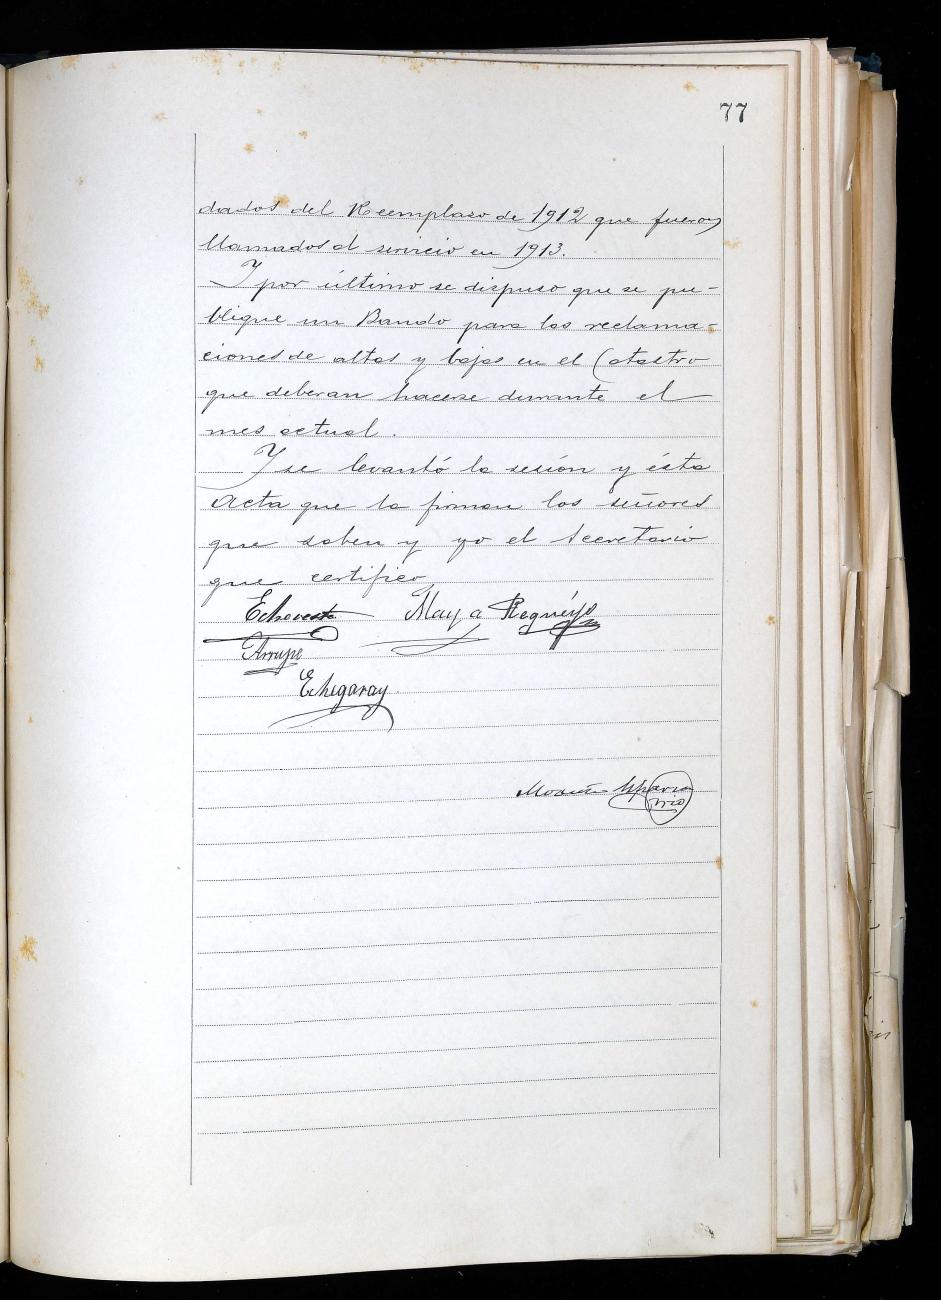 77
dados del Reemplazo de 1912 que fueron
llamados al servicio en 1913.
Y por último se dispuso que se pu-
blique un Bando para las reclama-
ciones de altas y bajas en el Catastro
que deberan hacerse durante el
mes actual.
Y se levantó la sesión y ésta
Acta que la firman los señores
que saben y yo el Secretario
que certifico
Echeveste Maya Reguéyo
Arrupe
Echegaray